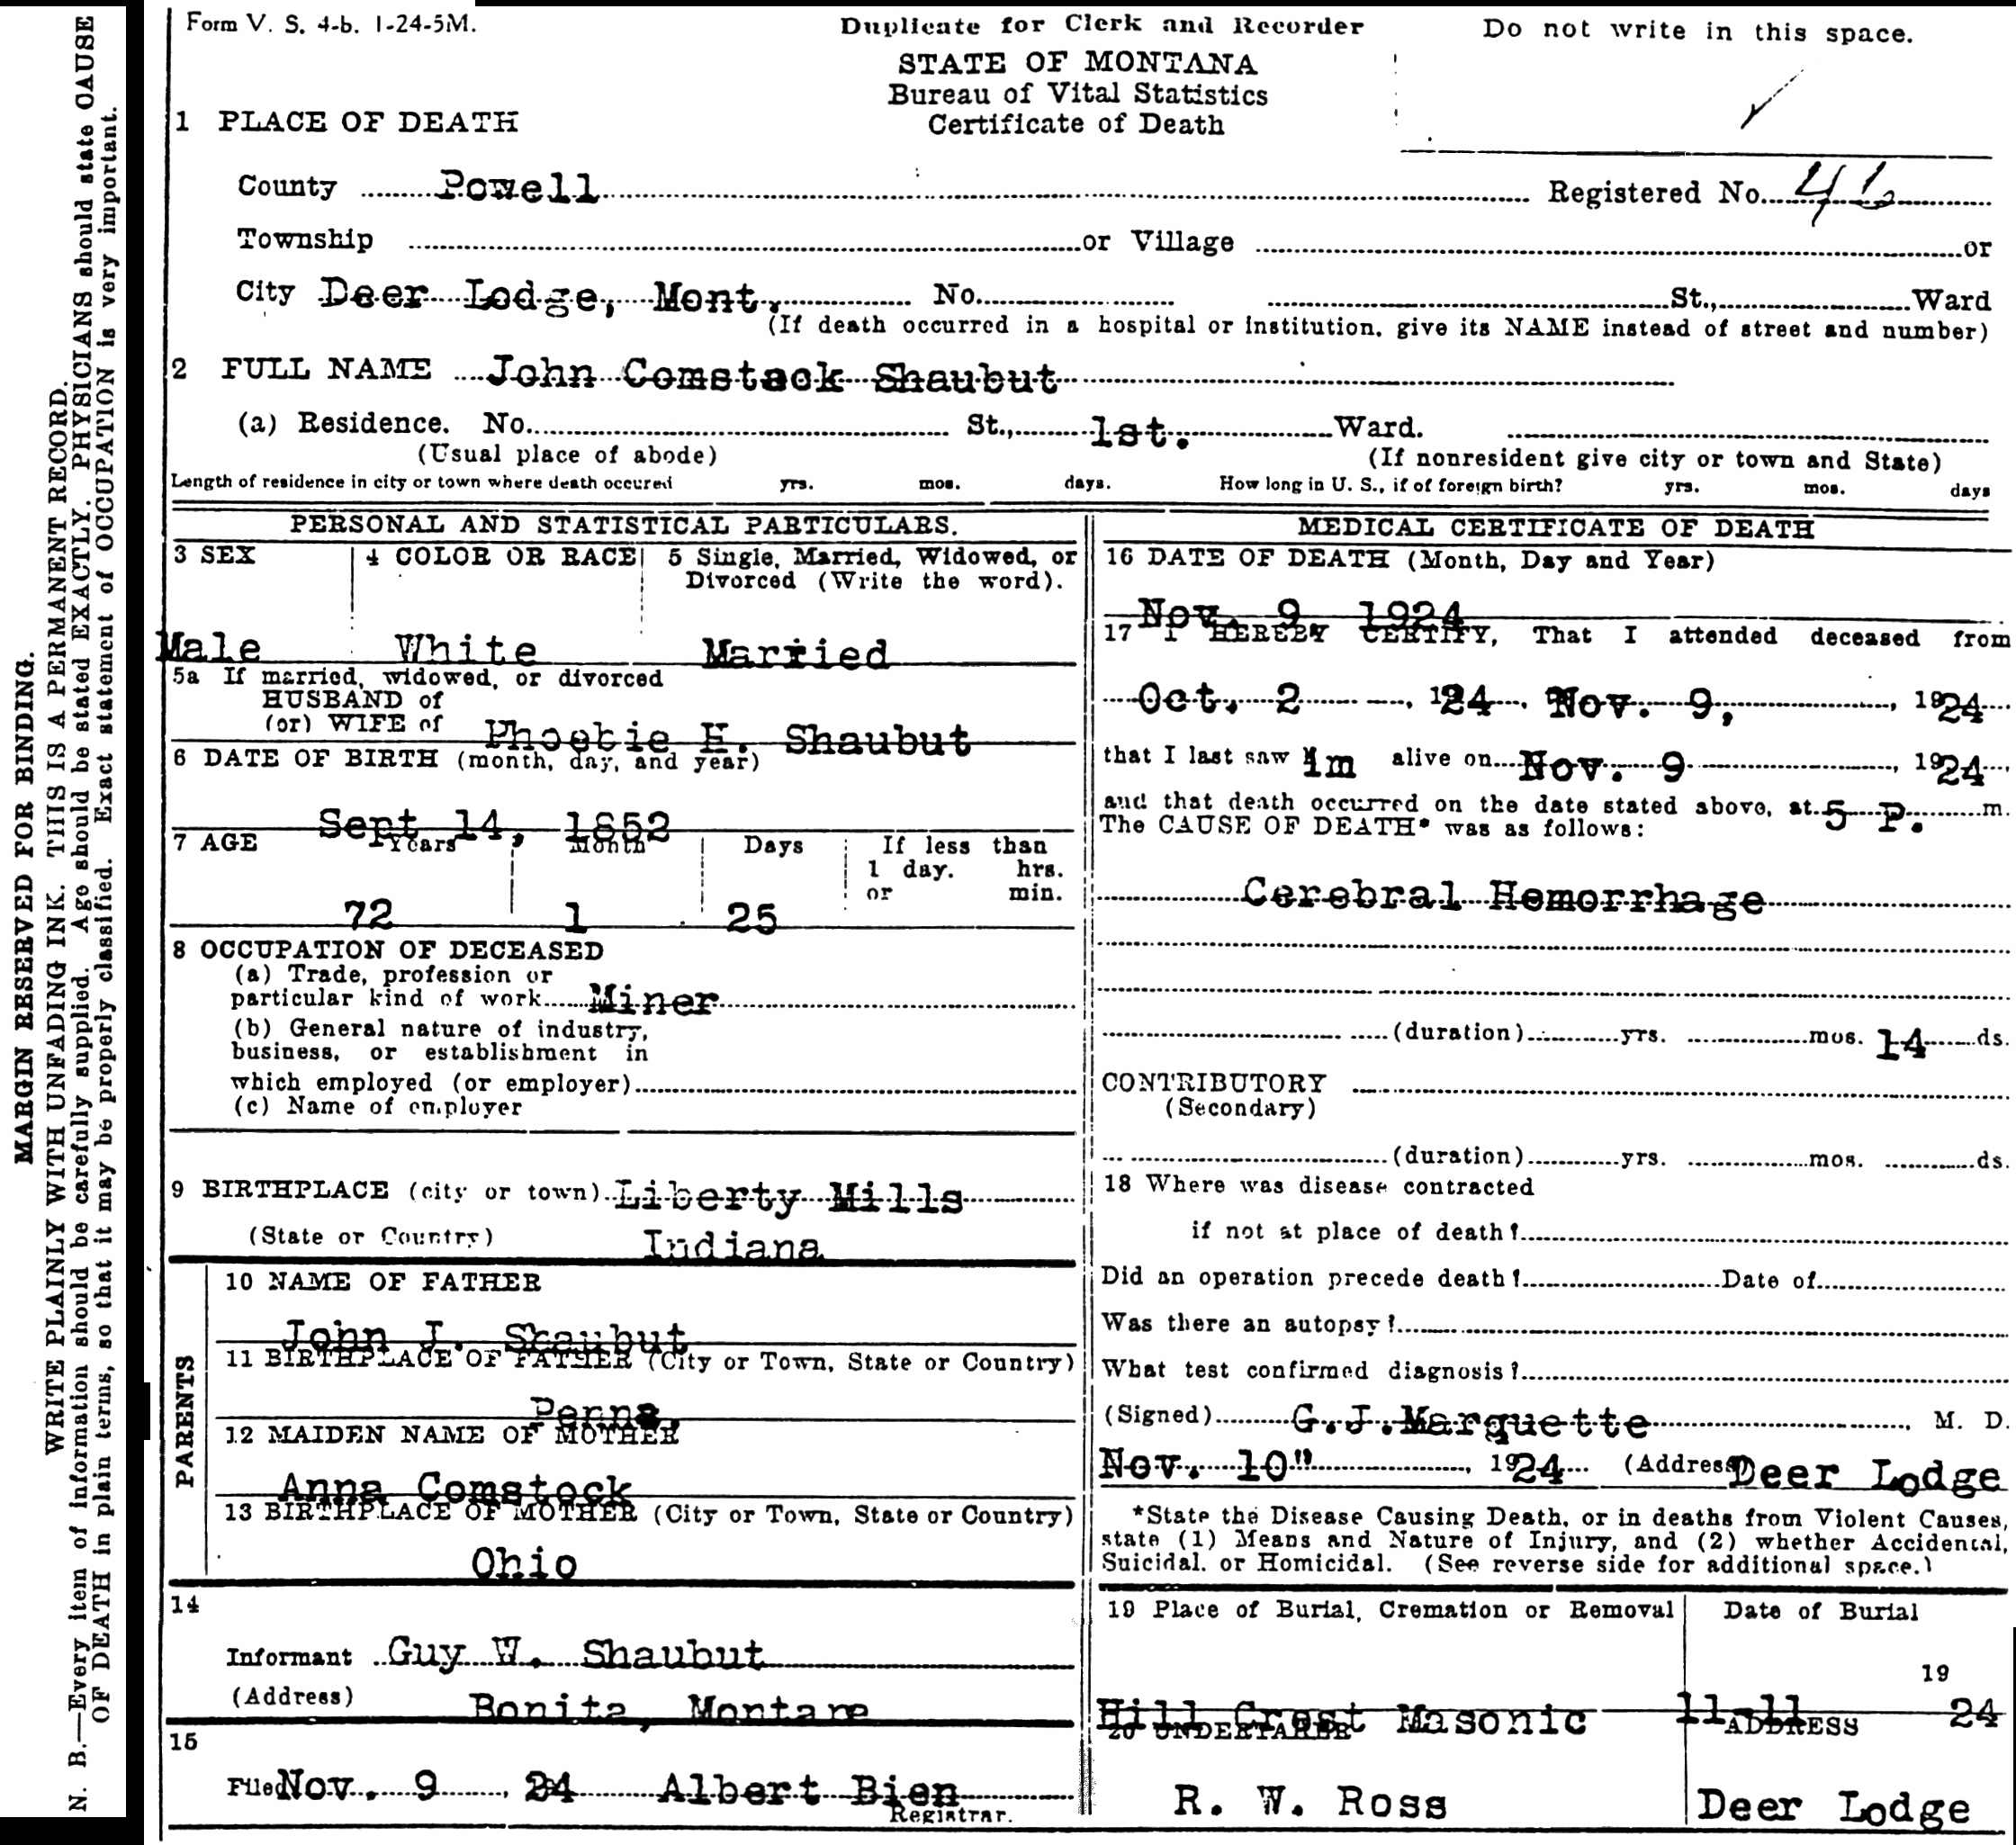 Form V. S. 4-b. 1-24-5M.
Duplicate for Clerk and Recorder
Do not write in this space.
STATE OF MONTANA
Bureau of Vital Statistics
Certificate of Death
1 PLACE OF DEATH
County Powell Registered No. 46
Township or Village or
City Deer Lodge, Mont. No. St., Ward
(If death occurred in a hospital or institution, give its NAME instead of street and number)
2 FULL NAME John Comstack Shaubut
(a) Residence. No. St., 1st. Ward.
(Usual place of abode) (If nonresident give city or town and State)
Length of residence in city or town where death occured yrs. mos. days. How long in U. S., if of foreign birth? yrs. mos. days
PERSONAL AND STATISTICAL PARTICULARS.
3 SEX 4 COLOR OR RACE 5 Single, Married, Widowed, or
Divorced (Write the word).
Male White Married
5a If married, widowed, or divorced
HUSBAND of
(or) WIFE of Phoebie E. Shaubut
6 DATE OF BIRTH (month, day, and year)
Sept 14, 1852
7 AGE Years Month Days If less than
1 day. hrs.
or min.
72 1 25
8 OCCUPATION OF DECEASED
(a) Trade, profession or
particular kind of work Miner
(b) General nature of industry,
business, or establishment in
which employed (or employer)
(c) Name of employer
9 BIRTHPLACE (city or town) Liberty Mills
(State or Country) Indiana
PARENTS
10 NAME OF FATHER
John J. Shaubut
11 BIRTHPLACE OF FATHER (City or Town, State or Country)
Penna,
12 MAIDEN NAME OF MOTHER
Anna Comstock
13 BIRTHPLACE OF MOTHER (City or Town, State or Country)
Ohio
14
Informant Guy W. Shaubut
(Address) Bonita, Montana
15
Filed Nov. 9, 24 Albert Bien
Registrar.
MEDICAL CERTIFICATE OF DEATH
16 DATE OF DEATH (Month, Day and Year)
Nov. 9, 1924
17 I HEREBY CERTIFY, That I attended deceased from
Oct. 2, 1924, Nov. 9, 1924
that I last saw im alive on Nov. 9, 1924,
and that death occurred on the date stated above, at 5 P. m.
The CAUSE OF DEATH* was as follows:
Cerebral Hemorrhage
(duration) yrs. mos. 14 ds.
CONTRIBUTORY
(Secondary)
(duration) yrs. mos. ds.
18 Where was disease contracted
if not at place of death?
Did an operation precede death? Date of
Was there an autopsy?
What test confirmed diagnosis?
(Signed) G.J.Marquette, M. D.
Nov. 10", 1924 (Address) Deer Lodge
*State the Disease Causing Death, or in deaths from Violent Causes,
state (1) Means and Nature of Injury, and (2) whether Accidental,
Suicidal, or Homicidal. (See reverse side for additional space.)
19 Place of Burial, Cremation or Removal Date of Burial
19
Hill Crest Masonic 11-11 24
20 UNDERTAKER ADDRESS
R. W. Ross Deer Lodge
MARGIN RESERVED FOR BINDING.
WRITE PLAINLY WITH UNFADING INK. THIS IS A PERMANENT RECORD.
N. B.—Every item of information should be carefully supplied. Age should be stated EXACTLY. PHYSICIANS should state CAUSE
OF DEATH in plain terms, so that it may be properly classified. Exact statement of OCCUPATION is very important.